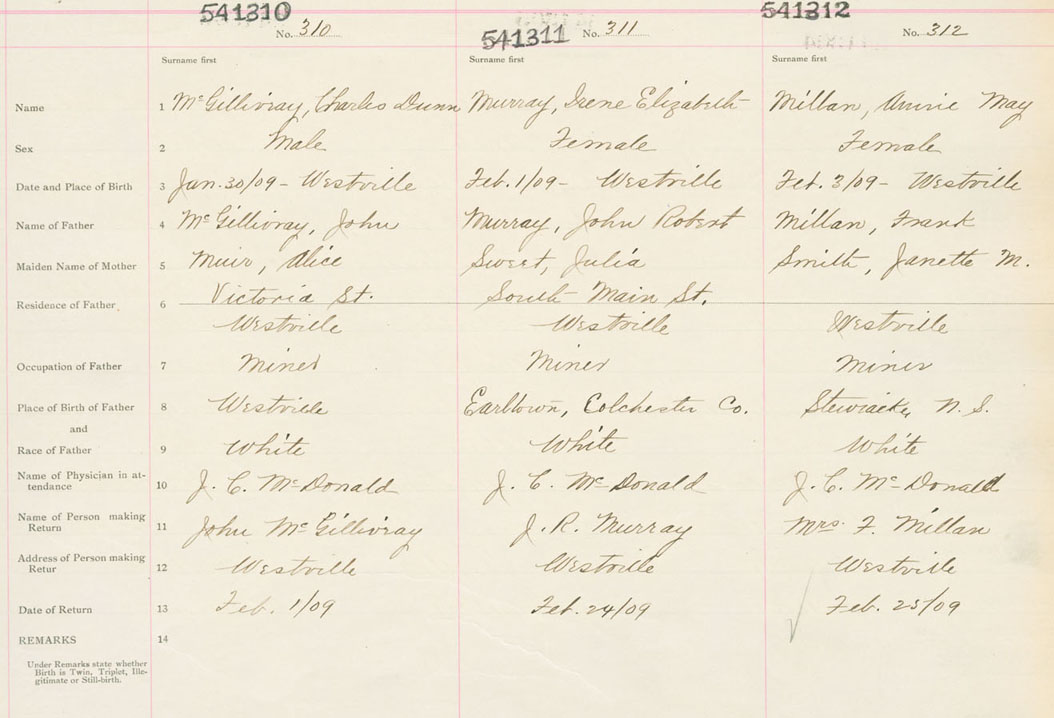 541310 541311 541312
No. 310 No. 311 No. 312
Surname first Surname first Surname first
Name 1 McGillivray, Charles Dunn Murray, Irene Elizabeth Millan, Annie May
Sex 2 Male Female Female
Date and Place of Birth 3 Jan. 30/09 - Westville Feb. 1/09 - Westville Feb. 3/09 - Westville
Name of Father 4 McGillivray, John Murray, John Robert Millan, Frank
Maiden Name of Mother 5 Muir, Alice Sweet, Julia Smith, Janette M.
Residence of Father 6 Victoria St. South Main St.
Westville Westville Westville
Occupation of Father 7 Miner Miner Miner
Place of Birth of Father 8 Westville Earltown, Colchester Co. Stewiacke, N. S.
and
Race of Father 9 White White White
Name of Physician in at-
tendance 10 J. C. McDonald J. C. McDonald J. C. McDonald
Name of Person making
Return 11 John McGillivray J. R. Murray Mrs. F. Millan
Address of Person making
Retur 12 Westville Westville Westville
Date of Return 13 Feb. 1/09 Feb. 24/09 Feb. 25/09
REMARKS 14
Under Remarks state whether
Birth is Twin, Triplet, Ille-
gitimate or Still-birth.